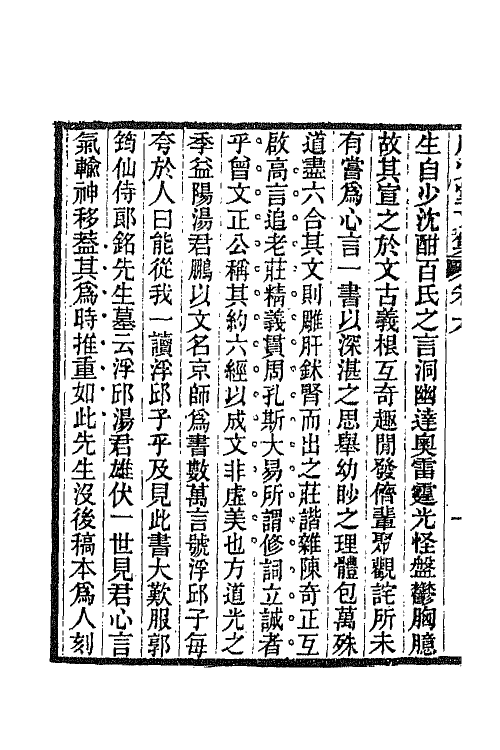 生自少沈酣百氏之言洞幽達奧雷霆光怪盤鬱胸臆
故其宣之於文古義根互奇趣閒發儕輩聚觀詫所未
有嘗爲心言一書以深湛之思舉幼眇之理體包萬殊
道盡六合其文則雕肝鉥腎而出之莊諧雜陳奇正互
啟高言追老莊精義貫周孔斯大易所謂修詞立誠者
乎曾文正公稱其約六經以成文非虛美也方道光之
季益陽湯君鵬以文名京師爲書數萬言號浮邱子每
夸於人曰能從我一讀浮邱子乎及見此書大歎服郭
筠仙侍郎銘先生墓云浮邱湯君雄伏一世見君心言
氣輸神移葢其爲時推重如此先生沒後稿本爲人刻